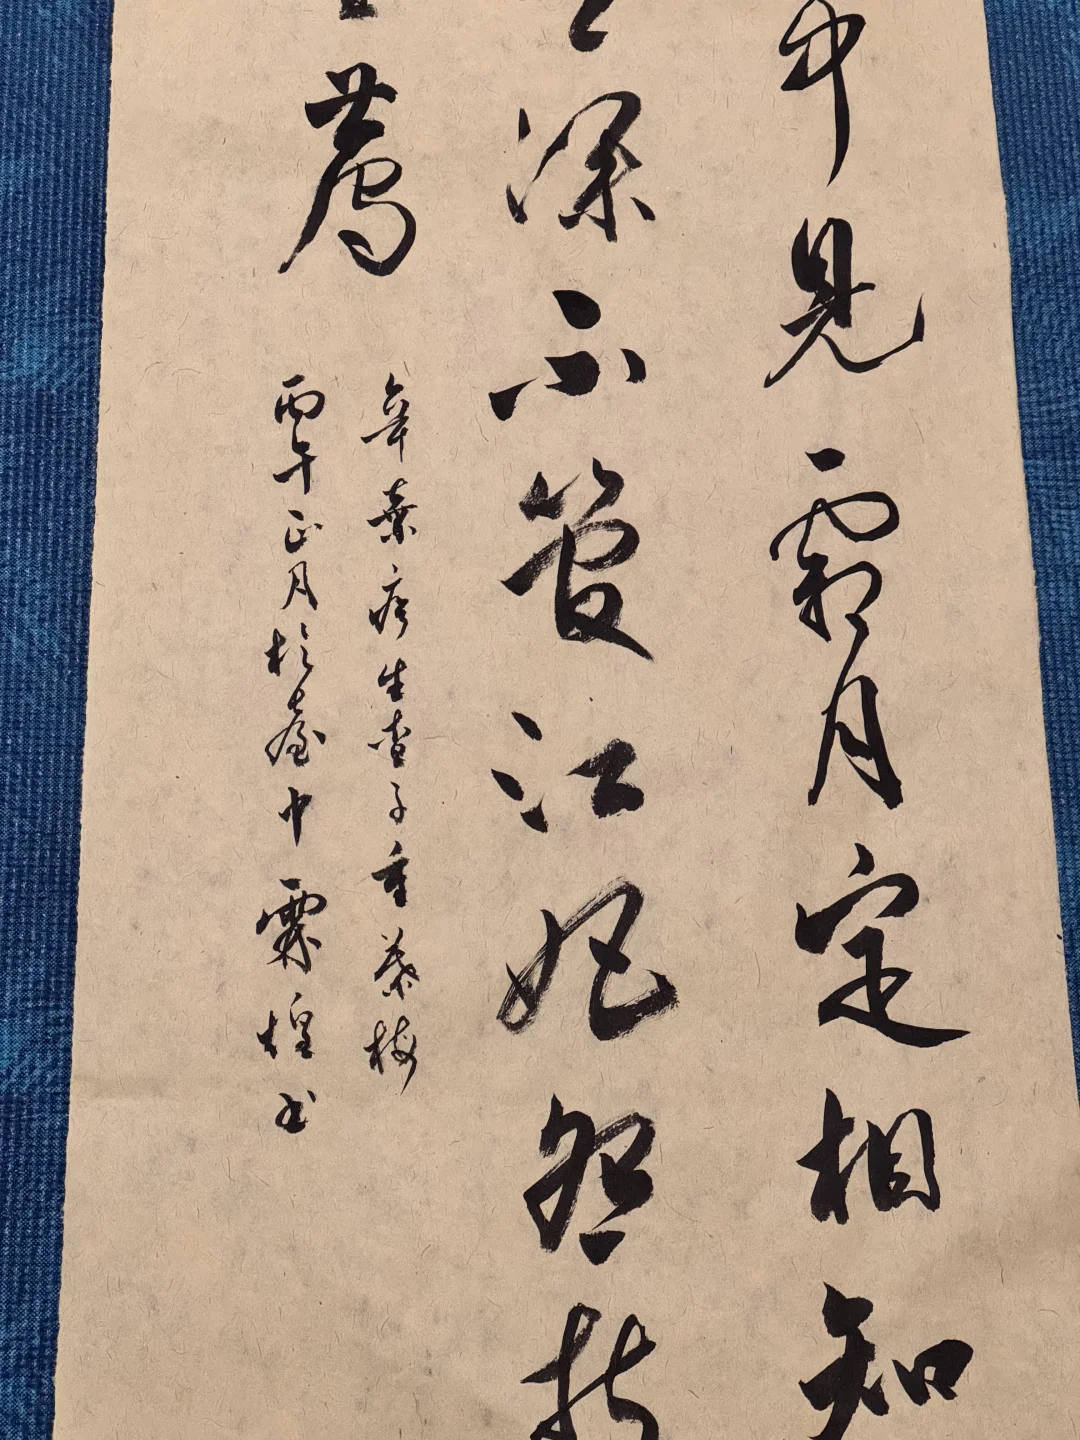 中見霜月定相知
深不管江妃怨折
薦
辛棄疾生查子重葉梅
丙午正月於臺中霖煌书